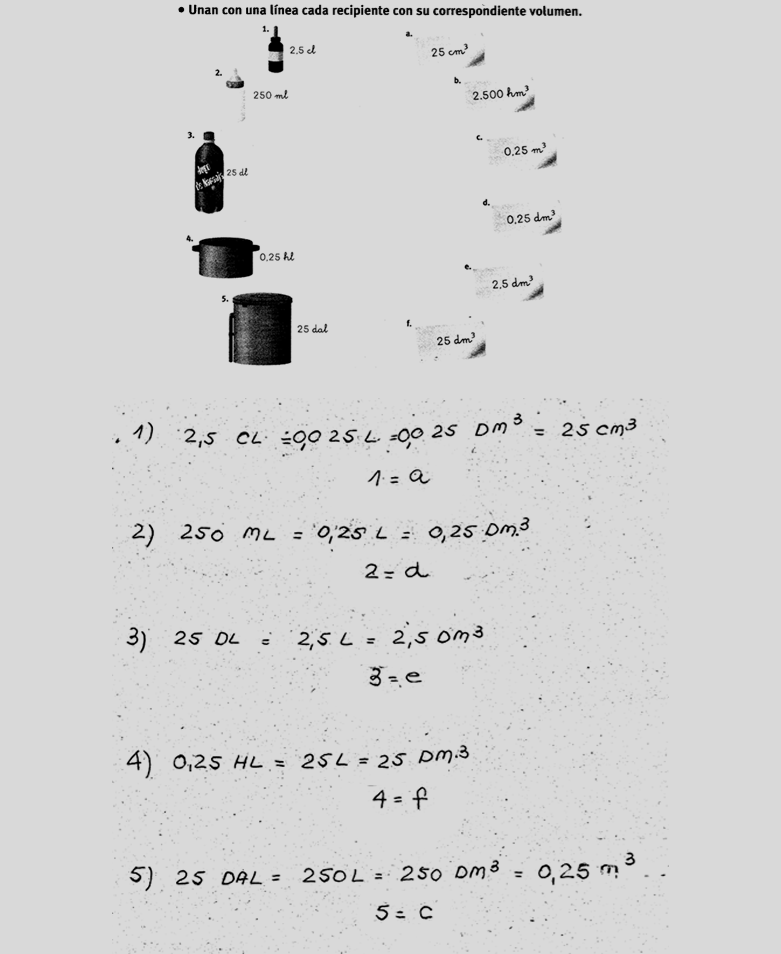 • Unan con una línea cada recipiente con su correspondiente volumen.
1.
2,5 cl
2.
250 ml
3.
25 dl
4.
0,25 hl
5.
25 dal
a.
25 cm³
b.
2.500 hm³
c.
0,25 m³
d.
0,25 dm³
e.
2,5 dm³
f.
25 dm³
1) 2,5 CL = 0,025 L = 0,025 DM³ = 25 cm³
1 = a
2) 250 ML = 0,25 L = 0,25 DM³
2 = d
3) 25 DL = 2,5 L = 2,5 DM³
3 = e
4) 0,25 HL = 25 L = 25 DM³
4 = f
5) 25 DAL = 250 L = 250 DM³ = 0,25 m³
5 = c